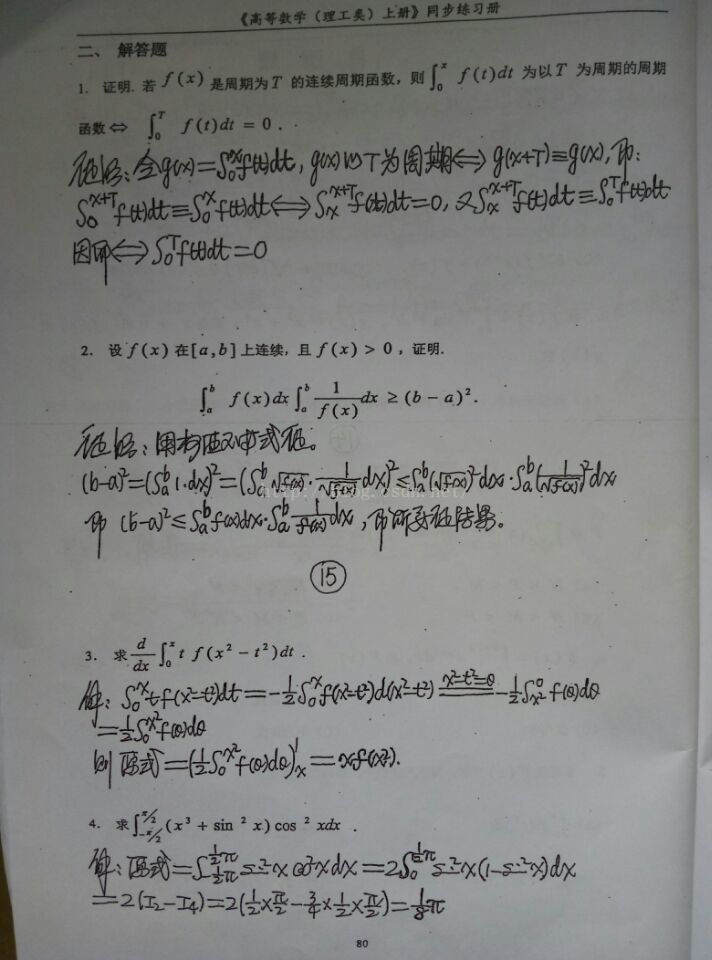 《高等数学（理工类）上册》同步练习册
二、 解答题
1. 证明. 若 f(x) 是周期为 T 的连续周期函数，则 ∫₀ˣ f(t)dt 为以 T 为周期的周期
函数⇔ ∫₀ᵀ f(t)dt = 0 .
证明：令g(x)=∫₀ˣf(t)dt, g(x)以T为周期⇔g(x+T)≡g(x), 即：
∫₀ˣ⁺ᵀf(t)dt≡∫₀ˣf(t)dt⇔∫ₓˣ⁺ᵀf(t)dt=0, 又∫ₓˣ⁺ᵀf(t)dt≡∫₀ᵀf(t)dt
因即⇔∫₀ᵀf(t)dt=0
2. 设 f(x) 在[a,b]上连续，且 f(x) > 0 ，证明.
∫ₐᵇ f(x)dx ∫ₐᵇ 1/f(x) dx ≥ (b − a)².
证明：用柯西不等式证。
(b-a)²=(∫ₐᵇ1·dx)²=(∫ₐᵇ√f(x)·1/√f(x) dx)²≤∫ₐᵇ(√f(x))²dx·∫ₐᵇ(1/√f(x))²dx
http://blog.csdn.net/
即 (b-a)²≤∫ₐᵇf(x)dx·∫ₐᵇ1/f(x) dx, 即所要证结果。
15
3. 求 d/dx ∫₀ˣ t f(x² − t²)dt .
解：∫₀ˣtf(x²-t²)dt=-1/2∫₀ˣf(x²-t²)d(x²-t²) x²-t²=θ -1/2∫_{x²}^0 f(θ)dθ
=1/2∫_0^{x²}f(θ)dθ
则 原式=(1/2∫_0^{x²}f(θ)dθ)'ₓ=xf(x²).
4. 求∫_{-π/2}^{π/2}(x³ + sin² x) cos² xdx .
解：原式=∫_{-1/2π}^{1/2π} sin²x cos²x dx=2∫_0^{1/2π} sin²x(1-sin²x)dx
=2(I₂-I₄)=2(1/2×π/2-3/4×1/2×π/2)=1/8π
80